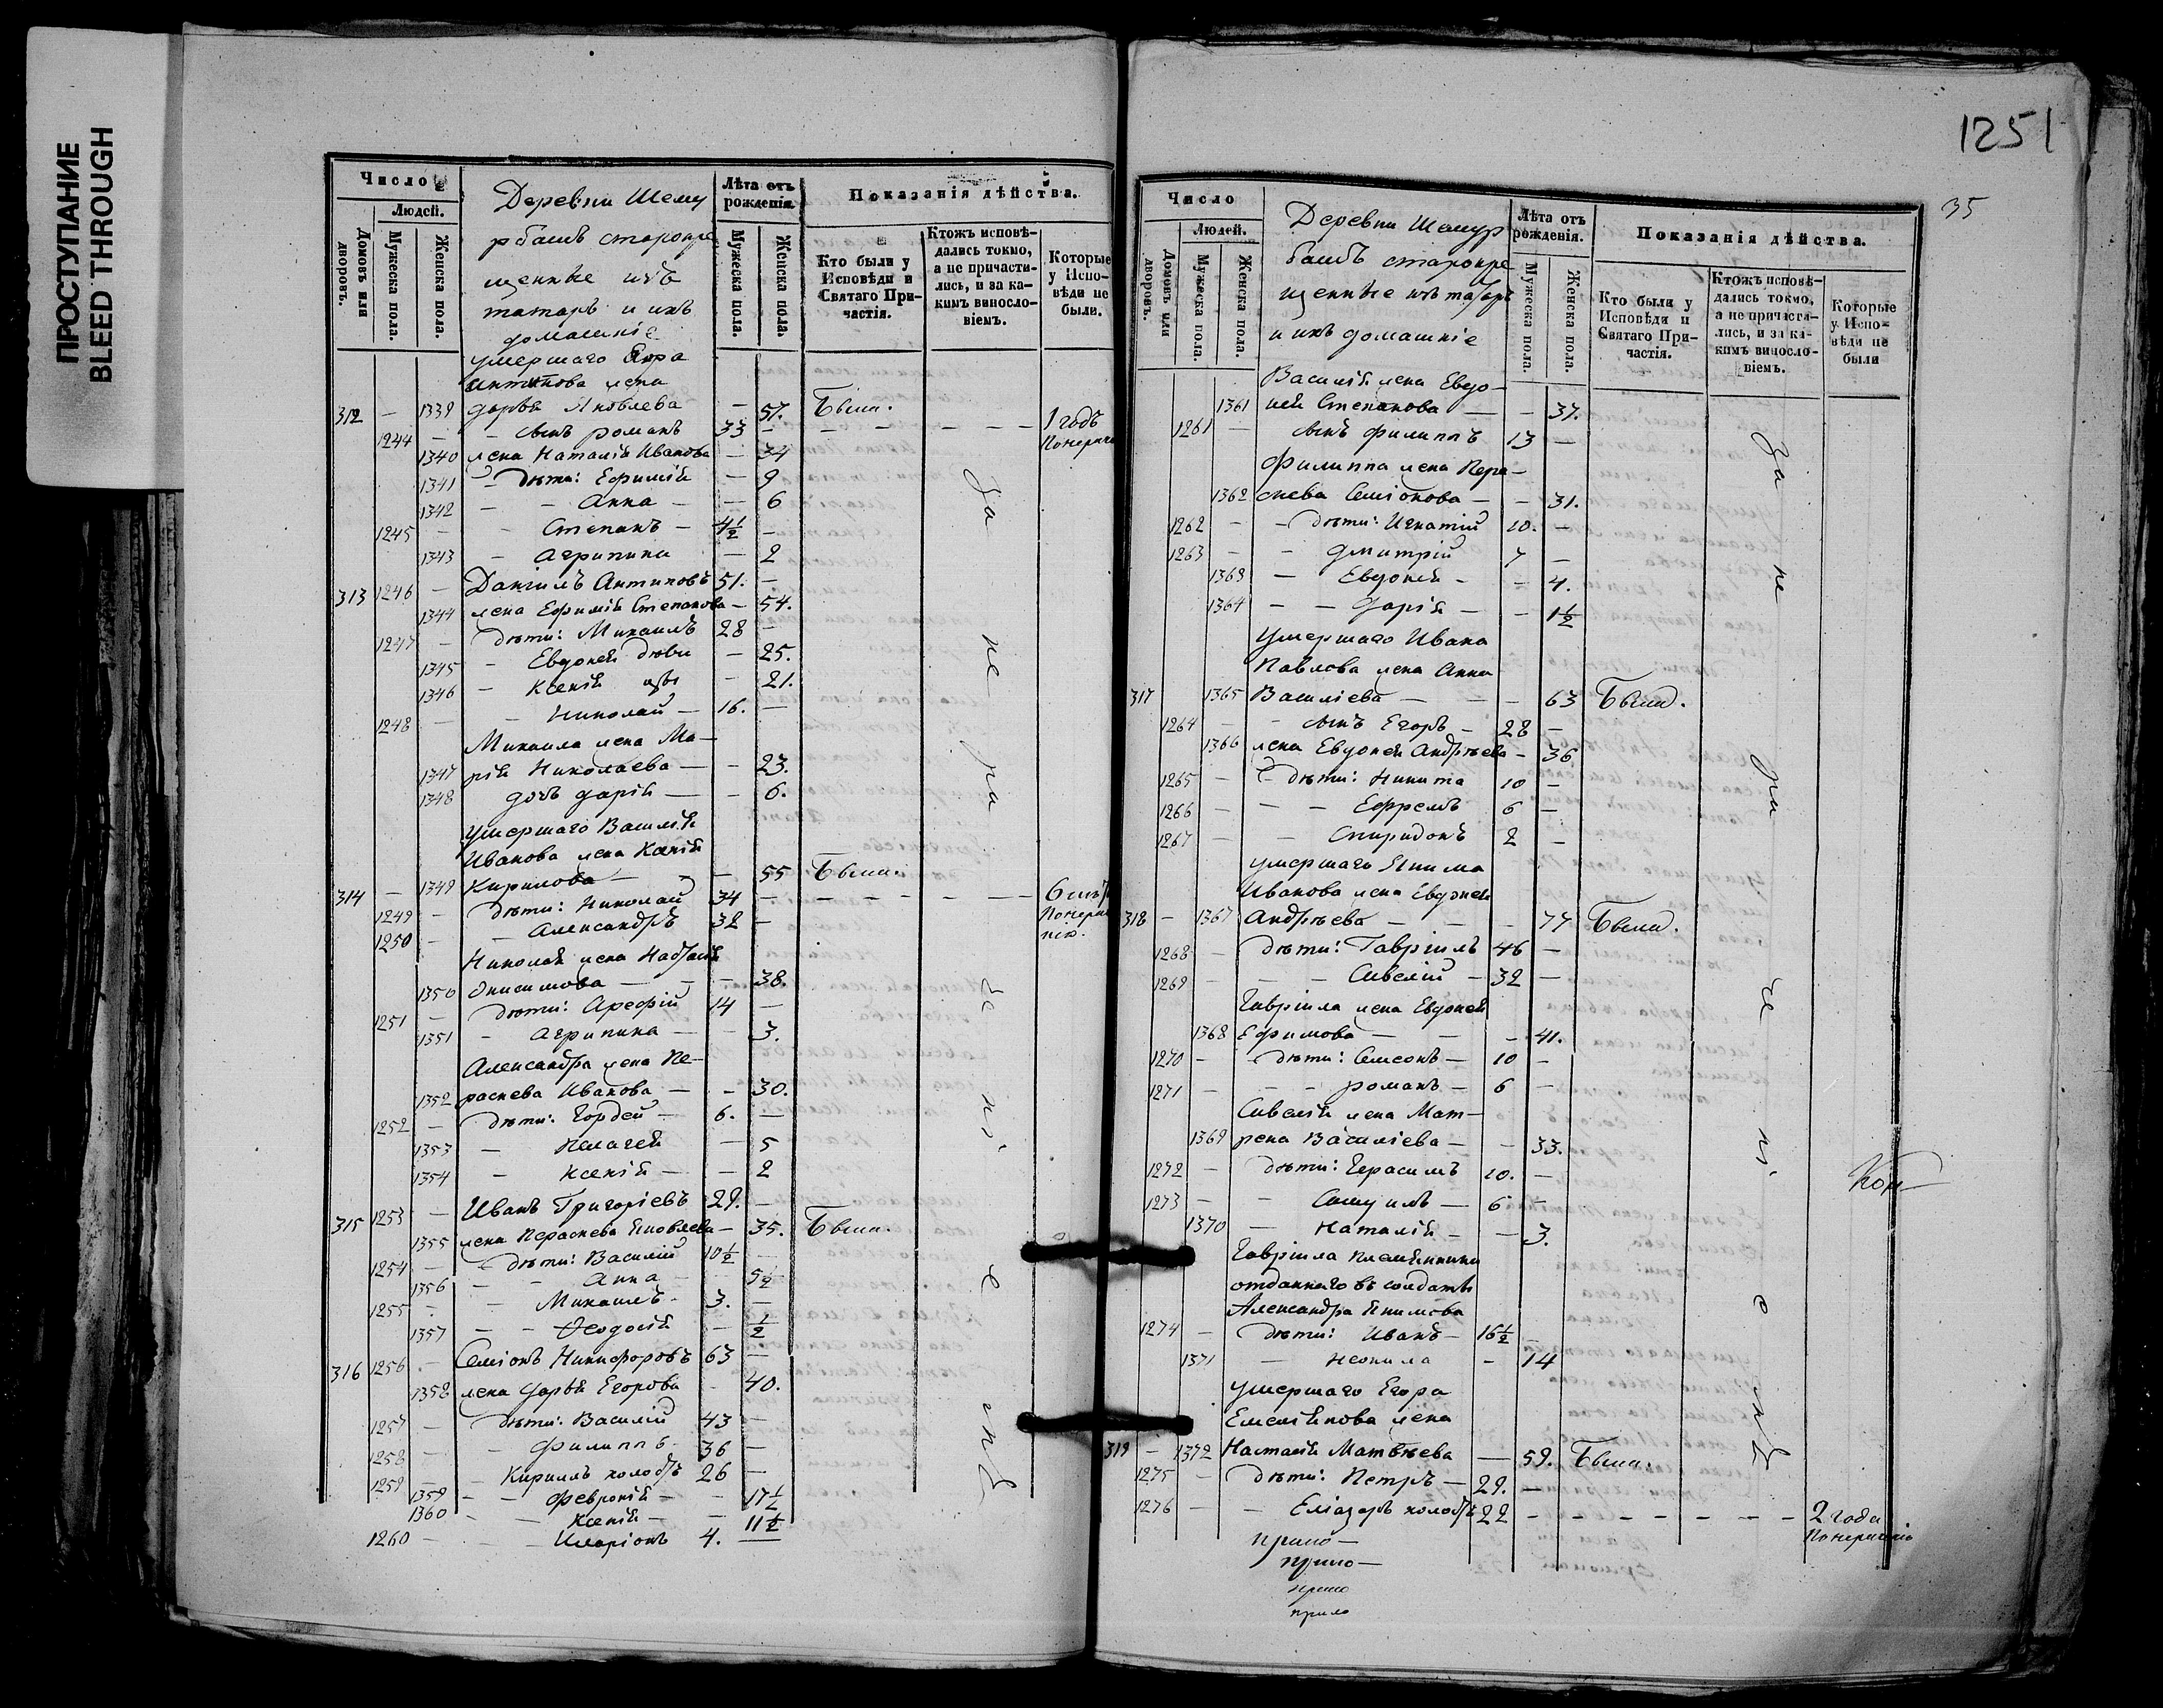 ПРОСТУПАНИЕ
BLEED THROUGH
Число
Людей.
Домовъ или дворовъ.
Мужеска пола.
Женска пола.
Деревни Шему
рбашъ старокре
щенные изъ
татаръ и ихъ
домашніе
Лѣта отъ рожденія.
Мужеска пола.
Женска пола.
Показанія дѣйства.
Кто были у Исповѣди и Святаго Причастія.
Ктожъ исповѣдались токмо, а не причастились, и за какимъ винословіемъ.
Которые у Исповѣди не были.
умершаго
Антипова жена
312 — 1339 дарья Яковлева — 57. Были.
1244 — сынъ романъ 33 — 1 годъ
1340 жена Наталія Иванова — 34
1341 — дѣти: Ефимія — 9
1342 — Анна — 6
1245 — Степанъ — 4½ —
1343 — Агрипина — 2
313 1246 — Даніилъ Антиповъ 51. —
1344 жена Ефимія Степанова — 54.
1247 — дѣти: Михаилъ 28 —
1345 — Евдокея — 25.
1346 — Ксенія — 21.
1248 — Николай — 16. —
Михаила жена Ма—
1347 рія Николаева — 23.
1348 дочь дарія — 6.
умершаго Василія
Иванова жена Ксенія
314 — 1349 Кирилова — 55 Были.
1249 — дѣти: Николай 34 — 6 лѣтъ
1250 — Александръ 32 —
Николая жена
1350 Онисимова — 38.
1251 — дѣти: Арефій 14 —
1351 — Агрипина — 3.
Александра жена Пе—
1352 раскева Иванова — 30.
1252 — дѣти: Гордей — 6. —
1353 — Пелагея — 5
1354 — Ксенія — 2
315 1253 — Иванъ Григоріевъ 29. —
1355 жена Параскева Яковлева — 35. Были.
1254 — дѣти: Василій 10½ —
1356 — Анна — 5½
1255 — Михаилъ — 3. —
1357 — Феодосія — ½
316 1256 — Семіонъ Никифоровъ 63 —
1358 жена дарья Егорова — 40.
1257 — дѣти: Василій 43 —
1258 — Филиппъ 36 —
1259 — Кирилъ холостъ 26 —
1359 — Февронія — 17½
1360 — Ксенія — 11½
1260 — Иларіонъ 4. —
За не ра че ні е мъ
1251
35
Число
Людей.
Домовъ или дворовъ.
Мужеска пола.
Женска пола.
Деревни Шемур
башъ старокре
щенные изъ татаръ
и ихъ домашніе
Лѣта отъ рожденія.
Мужеска пола.
Женска пола.
Показанія дѣйства.
Кто были у Исповѣди и Святаго Причастія.
Ктожъ исповѣдались токмо, а не причастились, и за какимъ винословіемъ.
Которые у Исповѣди не были
Василія жена Евдо—
1361 кея Степанова — 37.
1261 — сынъ Филиппъ 13 —
Филиппа жена Пара—
1362 скева Семіонова — 31.
1262 — дѣти: Игнатій 10. —
1263 — дмитрій 7 —
1363 — Евдокея — 4.
1364 — дарія — 1½
умершаго Ивана
Павлова жена Анна
317 1365 Василіева — 63 Были.
1264 — сынъ Егоръ — 28 —
1366 жена Евдокея Андрѣева — 36
1265 — дѣти: Никита 10 —
1266 — Ефремъ 6 —
1267 — Спиридонъ 2 —
умершаго Якима
Иванова жена Евдокея
318 — 1367 Андрѣева — 77 Были.
1268 — дѣти: Гавріилъ 46 —
1269 — Савелій — 32 —
Гавріила жена Евдокея
1368 Ефимова — 41.
1270 — дѣти: Семеонъ — 10 —
1271 — романъ — 6 —
Савелія жена Мат—
1369 рена Василіева — 33.
1272 — дѣти: Герасимъ 10. —
1273 — Самуилъ — 6 —
1370 — Наталія — 3.
Гавріила племянника
отданнаго въ солдаты
Александра Якимова
1274 — дѣти: Иванъ — 16½ —
1371 — Неонила — 14
умершаго Егора
Емеліянова жена
319 — 1372 Настасія Матвѣева — 59. Были.
1275 — дѣти: Петръ — 29. —
1276 — Еліазаръ холостъ 22 — 2 года
По нераченію
За не ра че ні е мъ